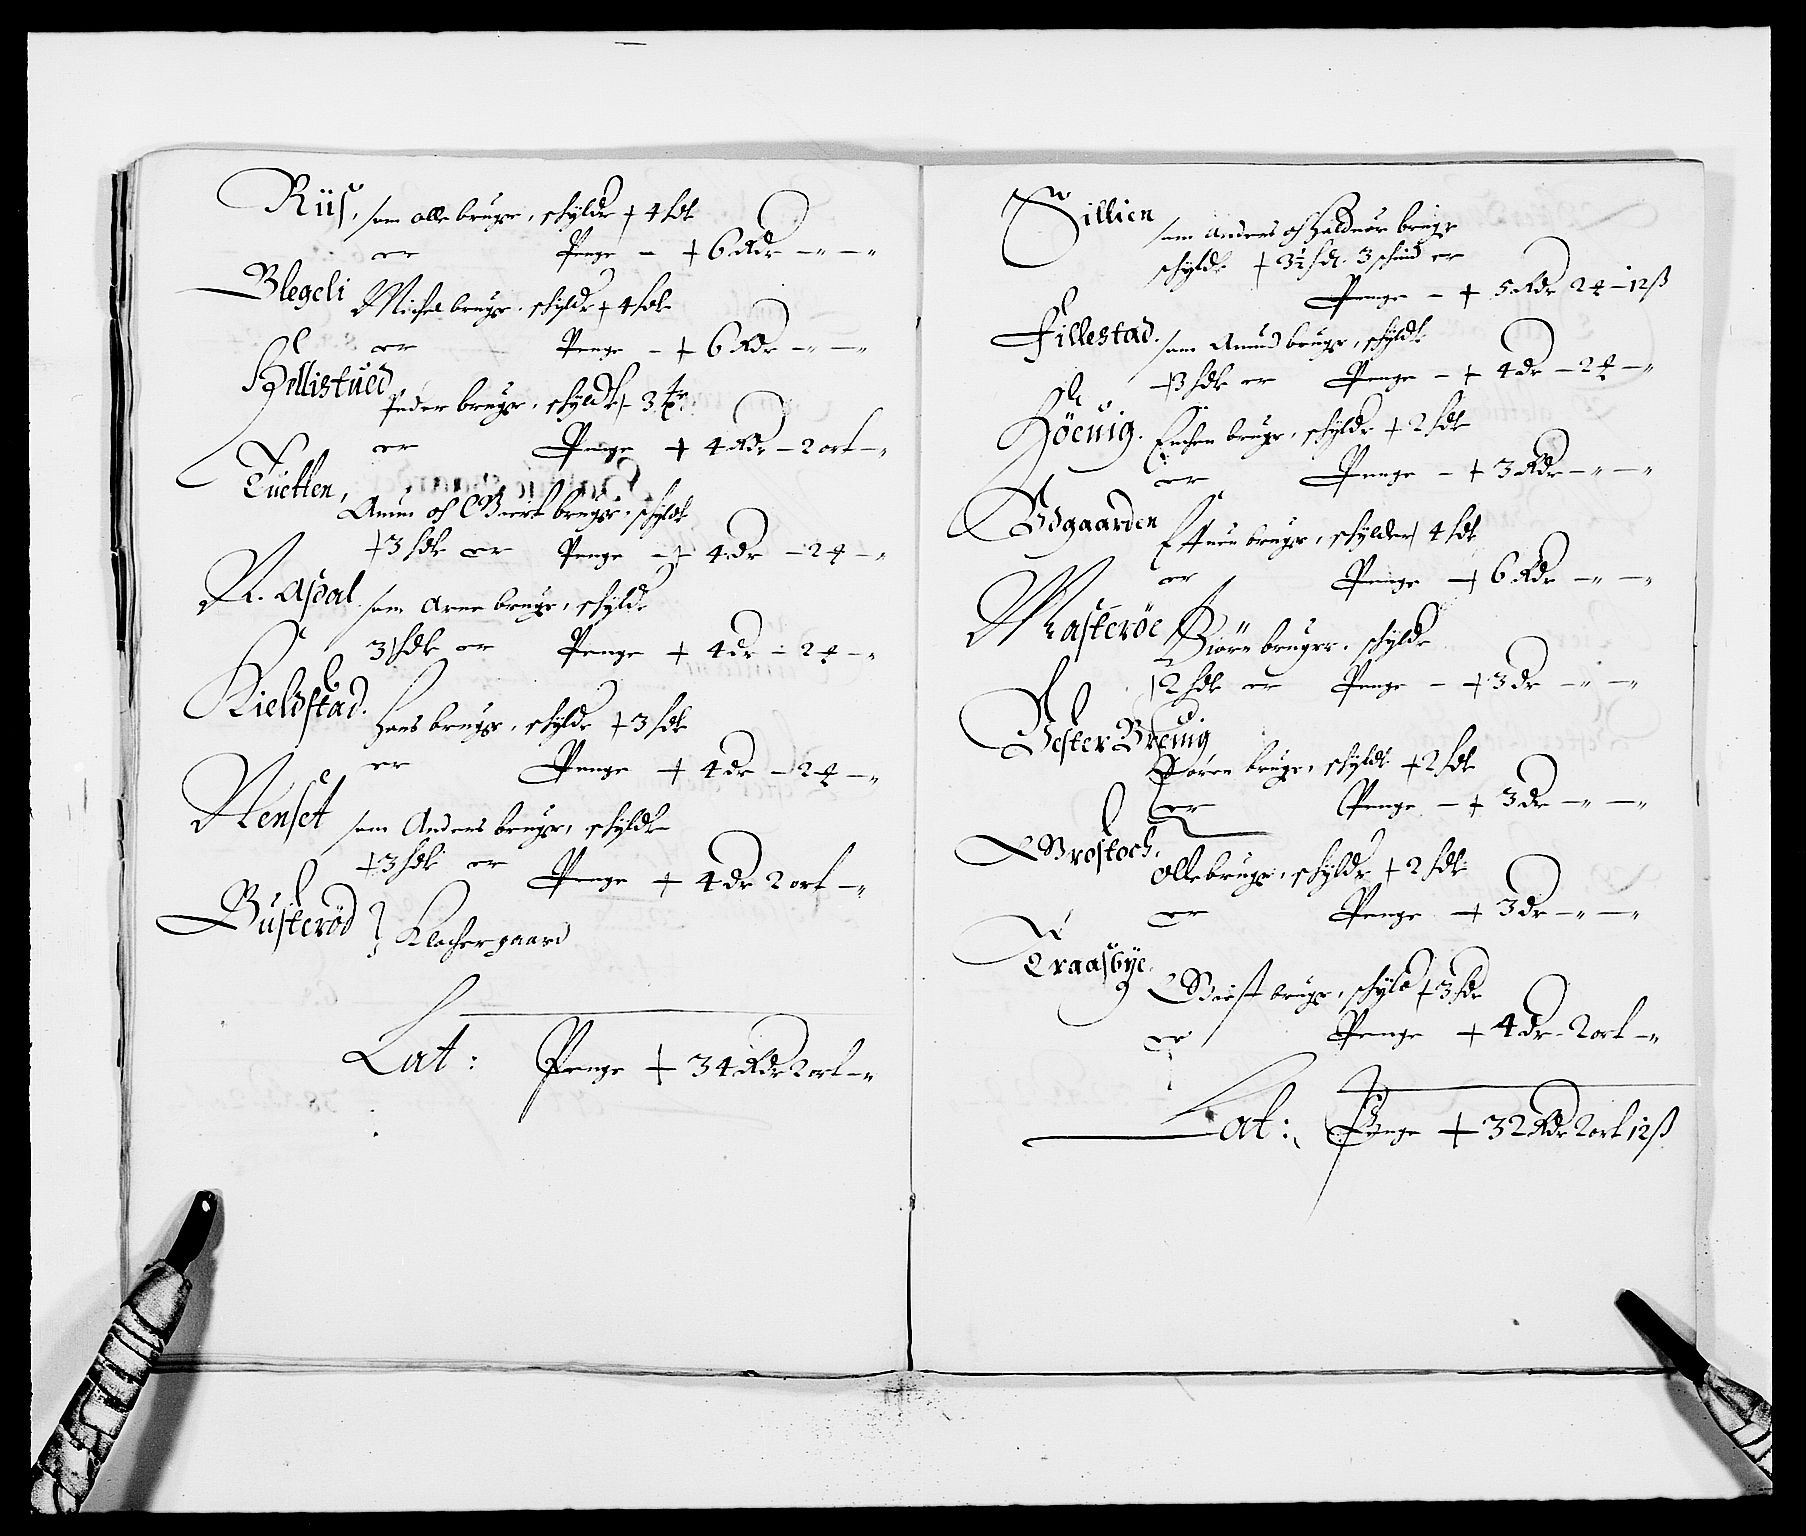 Riis, som olle bruger, schylder + 4 hdr
er Penge - + 6 Rdr - „ - „
Blegeli Michel bruger, schylder + 4 hdr
er Penge - + 6 Rdr - „ - „
Hellistued
Peder bruger, schylder + 3
er Penge + 4 Rdr - 2 ort - „
Tuetten,
Amun och bruger, schylder
+ 3 hdr er Penge - + 4 dr - 2 - „
N. Asdal som Arne bruger, schylder
3 hdr er Penge + 4 dr - 2 - „
Kieldstad. Hans bruger, schylder + 3 hdr
er Penge + 4 dr - 2 - „
Nenset som Anders bruger, schylder
+ 3 hdr er Penge + 4 dr 2 ort - „
Busterød } Klochergaard
Lat: Penge + 34 Rdr 2 ort - „
Sillien
som Anders och Halduor bruger
schylder + 3½ hdr. 3 schind er
Penge - + 5 Rdr 2 - 12 ß
Fillestad. som Amund bruger, schylder
+ 3 hdr er Penge - + 4 dr - 2 - „
Höeuig. bruger, schylder + 2 hdr
er Penge - + 3 Rdr - „ - „
Odgaarden bruger, schylder + 4 hdr
er Penge + 6 Rdr - „ - „
Masterøe Biörn bruger, schylder
+ 2 hdr er Penge - + 3 dr - „ - „
Vester Breuig
Sören bruger, schylder + 2 hdr
er Penge - + 3 dr - „ - „
Grostoch,
Olle bruger, schylder + 2 hdr
er Penge + 3 dr - „ - „
Traasbye,
bruger, schylder + 3 hdr
er Penge + 4 dr - 2 ort - „
Lat: Penge + 32 Rdr 2 ort 12 ß